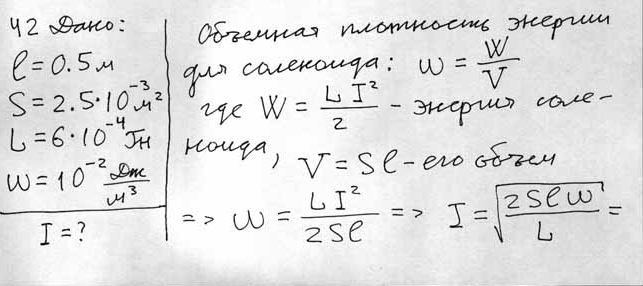 42 Дано:
l = 0.5 м
S = 2.5·10⁻³ м²
L = 6·10⁻⁴ Гн
w = 10⁻² Дж/м³
I = ?
Объемная плотность энергии
для соленоида: w = W/V
где W = LI²/2 - энергия соле-
ноида, V = Sl - его объем
=> w = LI²/2Sl => I = √(2Slw/L) =